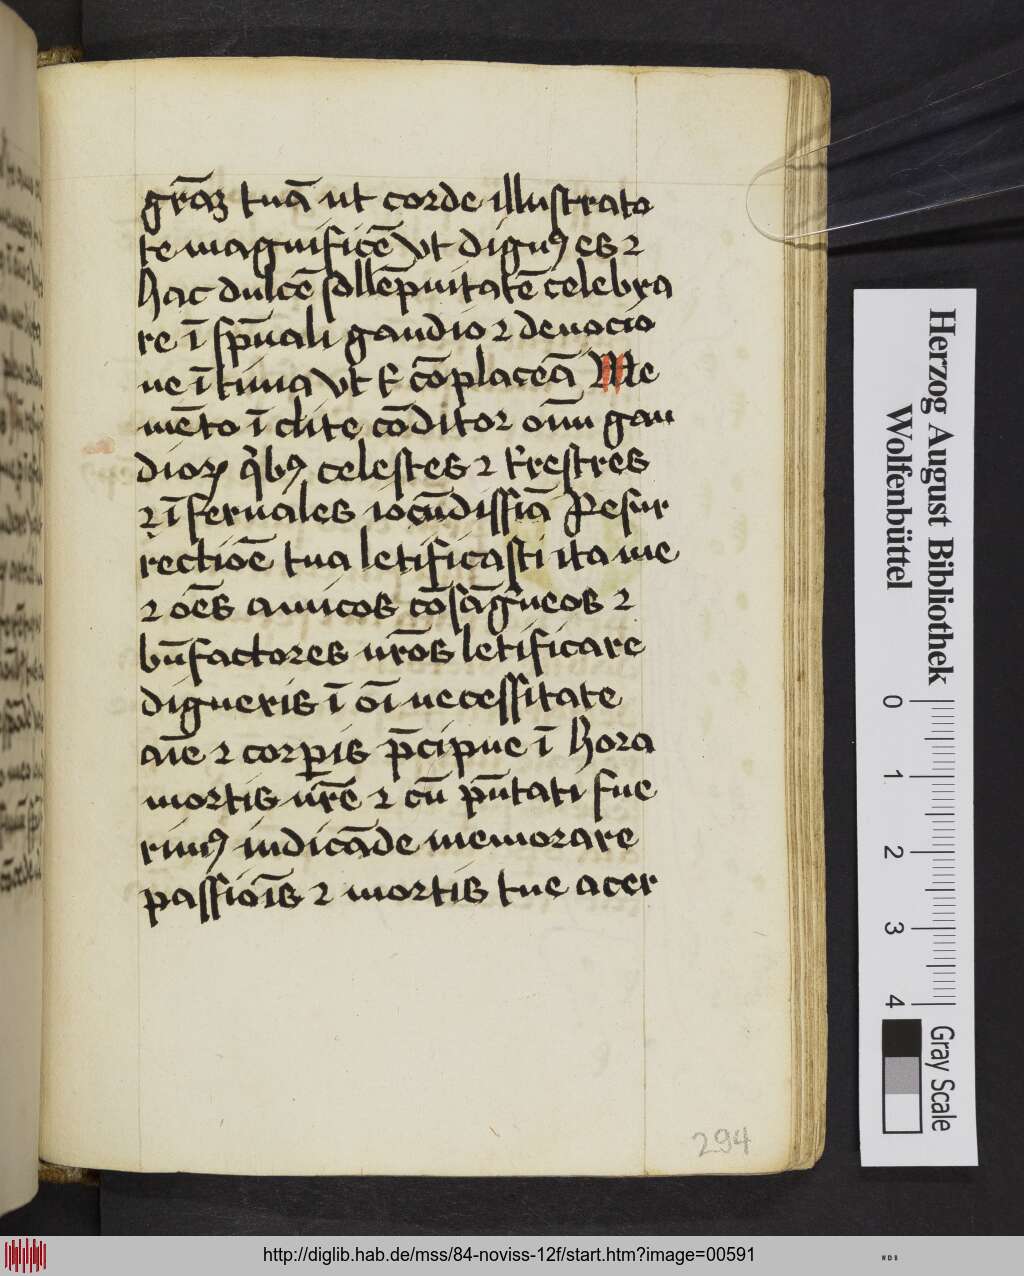 gr̄aꝫ tuā ut corde illustrato
te magnificē Vt dignꝰ es ⁊
hac dulcē sollēpnitatē celebra
re ī sp̄uali gaudio ⁊ deuocio
ne ītima Vt t̄ cōplaceā Me
mēto īclite cōditor oīm gau
dioꝝ qͥbꝰ celestes ⁊ t̄restres
⁊ īfernales iocūdissīa Resur
rectiōe tua letificasti ita me
⁊ oēs amicos cōsāgͥneos ⁊
bn̄factores nr̄os letificare
digneris ī oī necessitate
aīe ⁊ corꝑis p̄cipue ī hora
mortis nr̄e ⁊ cū pn̄tati fue
rimꝰ iudicāde memorare
passiōīs ⁊ mortis tue acer
294
Herzog August Bibliothek
Wolfenbüttel
0 1 2 3 4
Gray Scale
http://diglib.hab.de/mss/84-noviss-12f/start.htm?image=00591